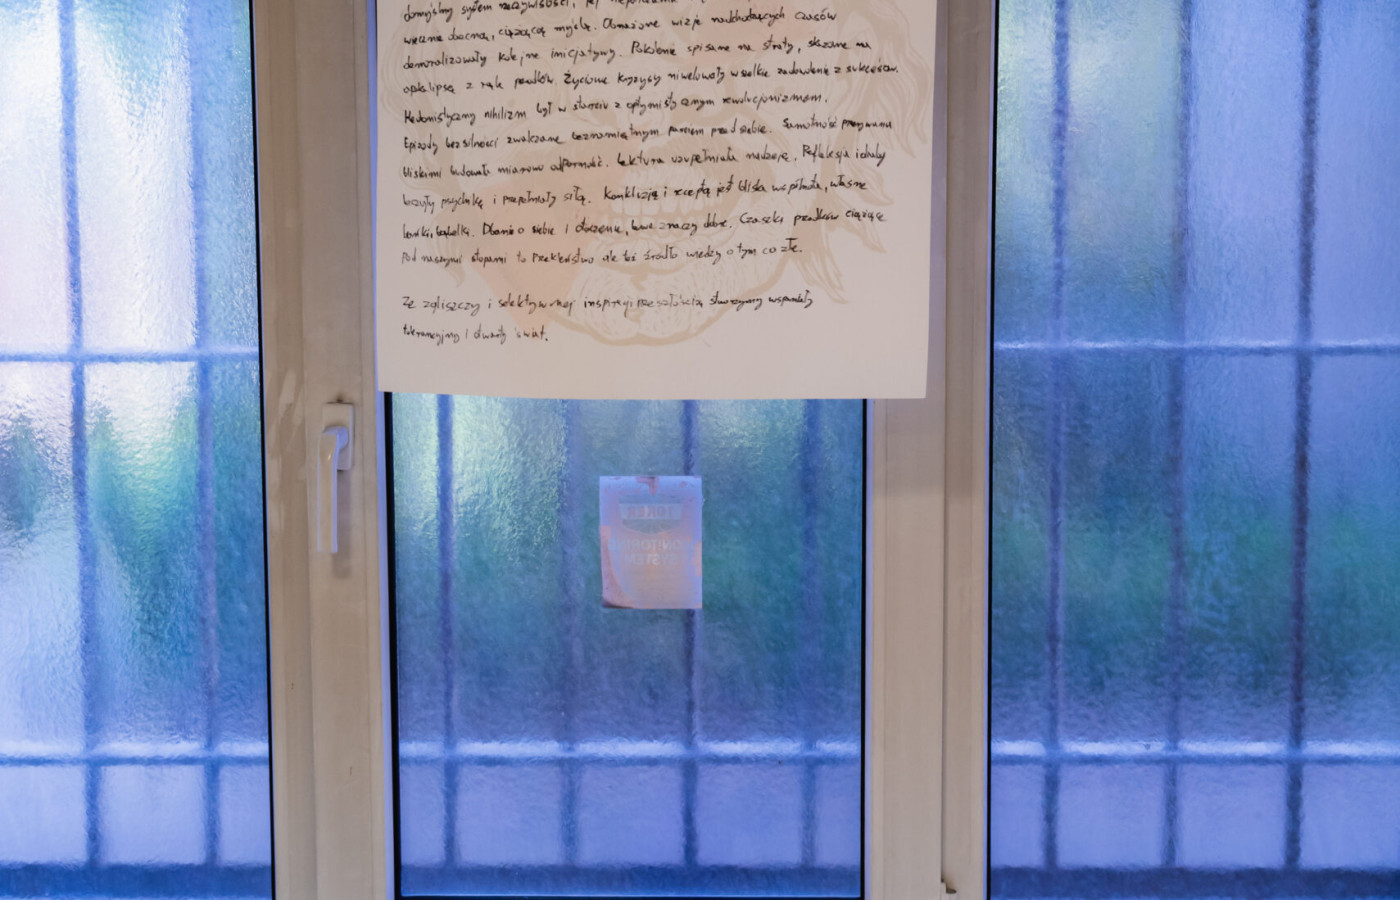 domyślny system rzeczywistości, jej
wiecznie obecną, ciążącą myślą. Obnażone wizje nadchodzących czasów
demoralizowały kolejne inicjatywy. Pokolenie spisane na straty, skazane na
apokalipsę z rąk przodków. Życiowe kryzysy niwelowały wszelkie zadowolenie z sukcesów.
Hedonistyczny nihilizm był w starciu z optymistycznym rewolucjonizmem.
Epizody bezsilności zwalczane beznamiętnym parciem przed siebie. Samotność przerywana
bliskimi budowała mianowo odporność. Lektura uzupełniała nadzieję. Refleksja i chuby
leczyły psychikę i przepełniały siłą. Konkluzją i receptą jest bliska wspólnota, własne
bańki, bąbelki. Dbanie o siebie i otoczenie, lewe znaczy dobre. Czaszki przodków ciążące
pod naszymi stopami to przekleństwo ale też źródło wiedzy o tym co złe.
Ze zgliszczy i selektywnej inspiracji przeszłością stworzymy wspaniały
tolerancyjny i otwarty świat.
JOKER
MONITORING
SYSTEM